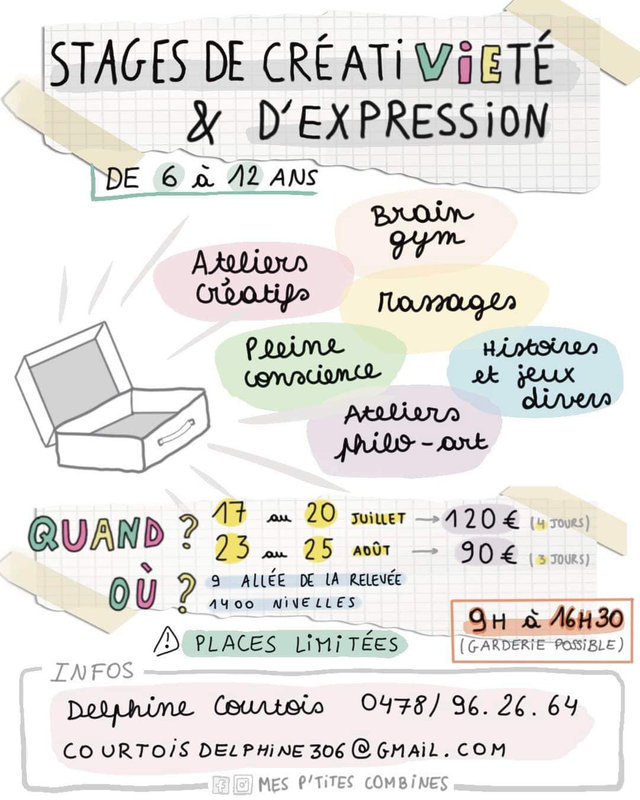 STAGES DE CRÉATIVIETÉ
& D'EXPRESSION
DE 6 à 12 ANS
Brain
gym
Ateliers
Créatifs
Massages
Pleine
conscience
Histoires
et jeux
divers
Ateliers
philo-art
QUAND ? 17 au 20 JUILLET → 120 € (4 JOURS)
23 au 25 AOÛT → 90 € (3 JOURS)
OÙ ? 9 ALLÉE DE LA RELEVÉE
1400 NIVELLES
9H à 16H30
(GARDERIE POSSIBLE)
⚠ PLACES LIMITÉES
INFOS
Delphine Courtois 0478/96.26.64
COURTOISDELPHINE306@GMAIL.COM
MES P'TITES COMBINES